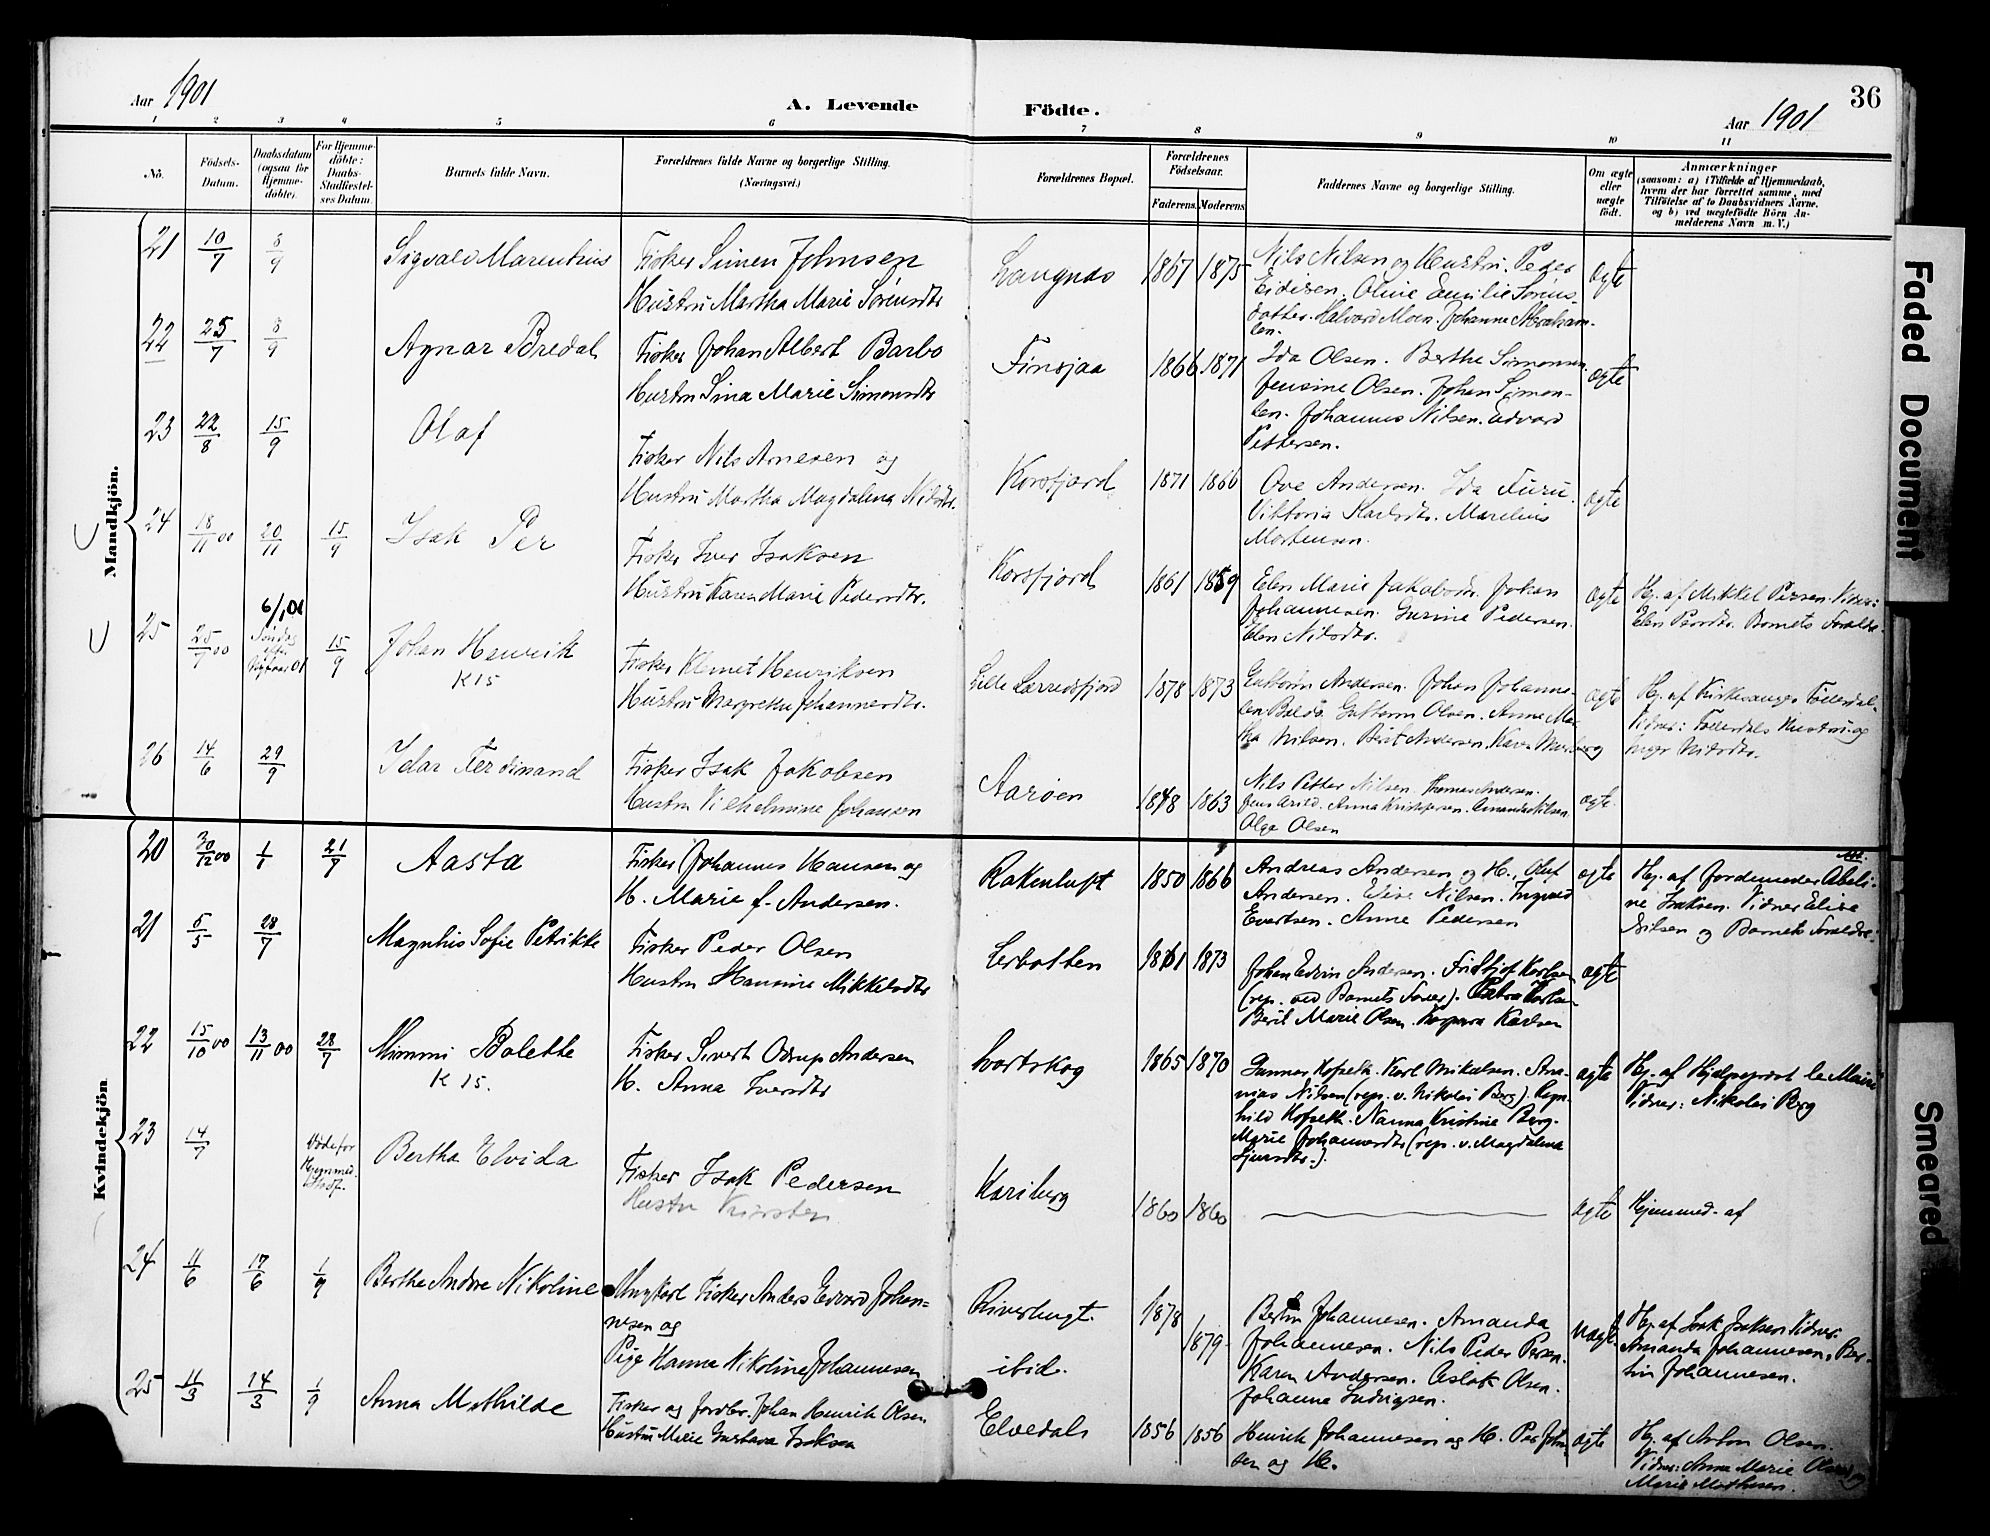 Aar 1901
A. Levende Födte.
Aar 1901
36
1 2 3 4 5 6 7 8 9 10 11
No.
Födsels-Datum.
Daabsdatum (ogsaa for Hjemme-döbte).
For Hjemme-döbte: Daabs-Stadfæstel-ses Datum.
Barnets fulde Navn.
Forældrenes fulde Navne og borgerlige Stilling.
(Næringsvei.)
Forældrenes Bopæl.
Forældrenes Födselsaar.
Faderens. Moderens.
Faddernes Navne og borgerlige Stilling.
Om ægte eller uægte født.
Anmærkninger
(saasom: a) i Tilfælde af Hjemmedaab, hvem der har forrettet samme, med Tilföielse af to Daabsvidners Navne, og b) ved uægtefödte Börn An-melderens Navn m. V.)
Mandkjön.
21 10/7 8/9 Sigvald Marenthius Fisker Simen Johnsen
Hustru Martha Marie Sörensdtr
Langnæs 1867 1875 Nils Nilsen og Hustru. Peder
Eidisen. Oline Emilie Sörens-
datter. Halvard Moen. Johanne Abraham-
sen.
ægte
22 25/7 8/9 Agnar Bredal Fisker Johan Albert Barbo
Hustru Sina Marie Simonsdtr
Finsjaa 1866 1871 Ida Olsen. Berthe Simonsen
Jensine Olsen. Johan Simon-
sen. Johannes Nilsen. Edvard
Pettersen.
ægte
23 22/8 15/9 Olaf Fisker Nils Arnesen og
Hustru Martha Magdalena Nilsdtr.
Korsfjord 1871 1866 Ove Andersen. Ida Furu.
Viktoria Karlsdtr. Marelius
Mortensen.
ægte
24 18/11 00 20/11 15/9 Isak Per Fisker Iver Isaksen
Hustru Karen Marie Pedersdtr.
Korsfjord 1861 1859 Elen Marie Jakobsdtr. Johan
Johannesen. Gurine Pedersen.
Elen Nilsdtr.
ægte Hj. af Mikkel Persen. Vidner:
Elen Persdtr. Barnets Forældre.
25 25/7 00 6/1 01 Söndag efter Nytaar 01 15/9 Johan Henrik
K 15
Fisker Klemet Henriksen
Hustru Margrethe Johannesdtr.
Lille Lerresfjord 1878 1873 Guttorm Andersen. Johan Johanne-
sen Guttorm Olsen. Anne Mar-
tha Nilsen. Berit Andersen. Karen
ægte Hj. af Kirkesanger Follesdal.
Vidner: Follesdals Hustru og
Inger Nilsdtr.
26 14/6 29/9 Idar Ferdinand Fisker Isak Jakobsen
Hustru Vilhelmine Johansen
Aaröen 1848 1863 Nils Petter Nilsen. Thomas Andersen.
Jens Arild. Anna Kristoffersen. Amanda Nilsen.
Olga Olsen
ægte.
Kvindekjön
20 30/12 00 1/1 21/7 Aasta Fisker Johannes Hansen og
H. Marie f. Andersen.
Rakenluft 1850 1866 Andreas Andersen og H., Oluf
Andersen. Elise Nilsen. Ingvald
Evertsen. Anne Pedersen
ægte Hj. af Jordemoder Abeli-
ne Isaksen. Vidner Elise
Nilsen og Barnets Forældre.
21 5/5 28/7 Magnhis Sofie Petrikke Fisker Peder Olsen
Hustru Hansine Mikkelsdtr
Lerbotten 1861 1873 Johan Edvin Andersen. Fridtjof Karlsen
(rep. ved Barnets Fader). Petra Karlsen
Beril Marie Olsen. Karlsen
ægte
22 15/10 00 13/11 00 28/7 Mimmi Bolette
K 15.
Fisker Sivert Odrup Andersen
H. Anna Iversdtr
Svartskog 1865 1870 Gunnar Hofseth. Karl Mikalsen. Ana-
nias Nilsen (rep. v. Nikolai Berg). Ragn-
hild Hofseth. Nanna Kristine Berg.
Marie Johannesdtr (rep. v. Magdalena
Sjursdtr.).
ægte Hj. af Hjælpeprest le Maire
Vidner: Nikolai Berg
23 14/7 Döde för Hjemmed. Stadf. Bertha Elvida Fisker Isak Pedersen
Hustru Kirsten
Kariberg 1860 1860 ægte Hjemmed. af
24 11/6 17/6 1/9 Berthe Andrea Nikoline Ungkarl Fisker Anders Edvard Johan-
nesen og
Pige Hanna Nikoline Johannesen
Riverbugt. 1878
ibid. 1879
Bertin Johannesen. Amanda
Johannesen. Nils Peder Persen.
Karen Andersen. Aslak Olsen.
Johanne Ludvigsen.
uægte. Hj. af Isak Isaksen Vidner:
Amanda Johannesen, Ber-
tin Johannesen.
25 11/3 14/3 1/9 Anna Mathilde Fisker og Jordbr. Johan Henrik Olsen
Hustru Marie Gustava Isaksen
Elvedal 1856 1856 Henrik Johannesen og H. Per Johan-
sen og H.
ægte Hj. af Anton Olsen.
Vidner: Anna Marie Olsen og
Marie Mathisen.
Faded Document
Smeared